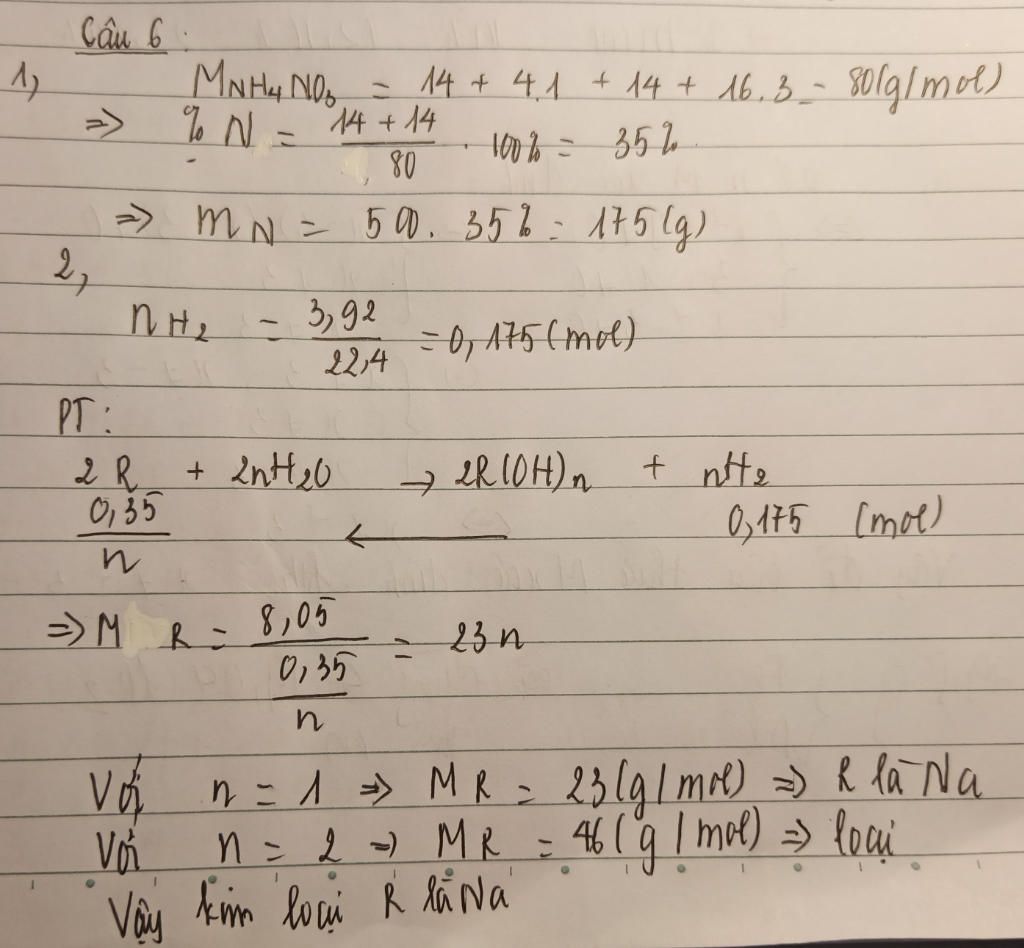 Câu 6 :
1, M NH4NO3 = 14 + 4.1 + 14 + 16.3 = 80(g/mol)
=> % N = (14 + 14)/80 . 100% = 35%
=> m N = 500. 35% = 175(g)
2,
n H2 = 3,92/22,4 = 0,175(mol)
PT:
2R + 2nH2O → 2R(OH)n + nH2
0,35/n ← 0,175 (mol)
=> M R = 8,05/(0,35/n) = 23n
Với n = 1 => MR = 23(g/mol) => R là Na
Với n = 2 => MR = 46(g/mol) => loại
Vậy kim loại R là Na